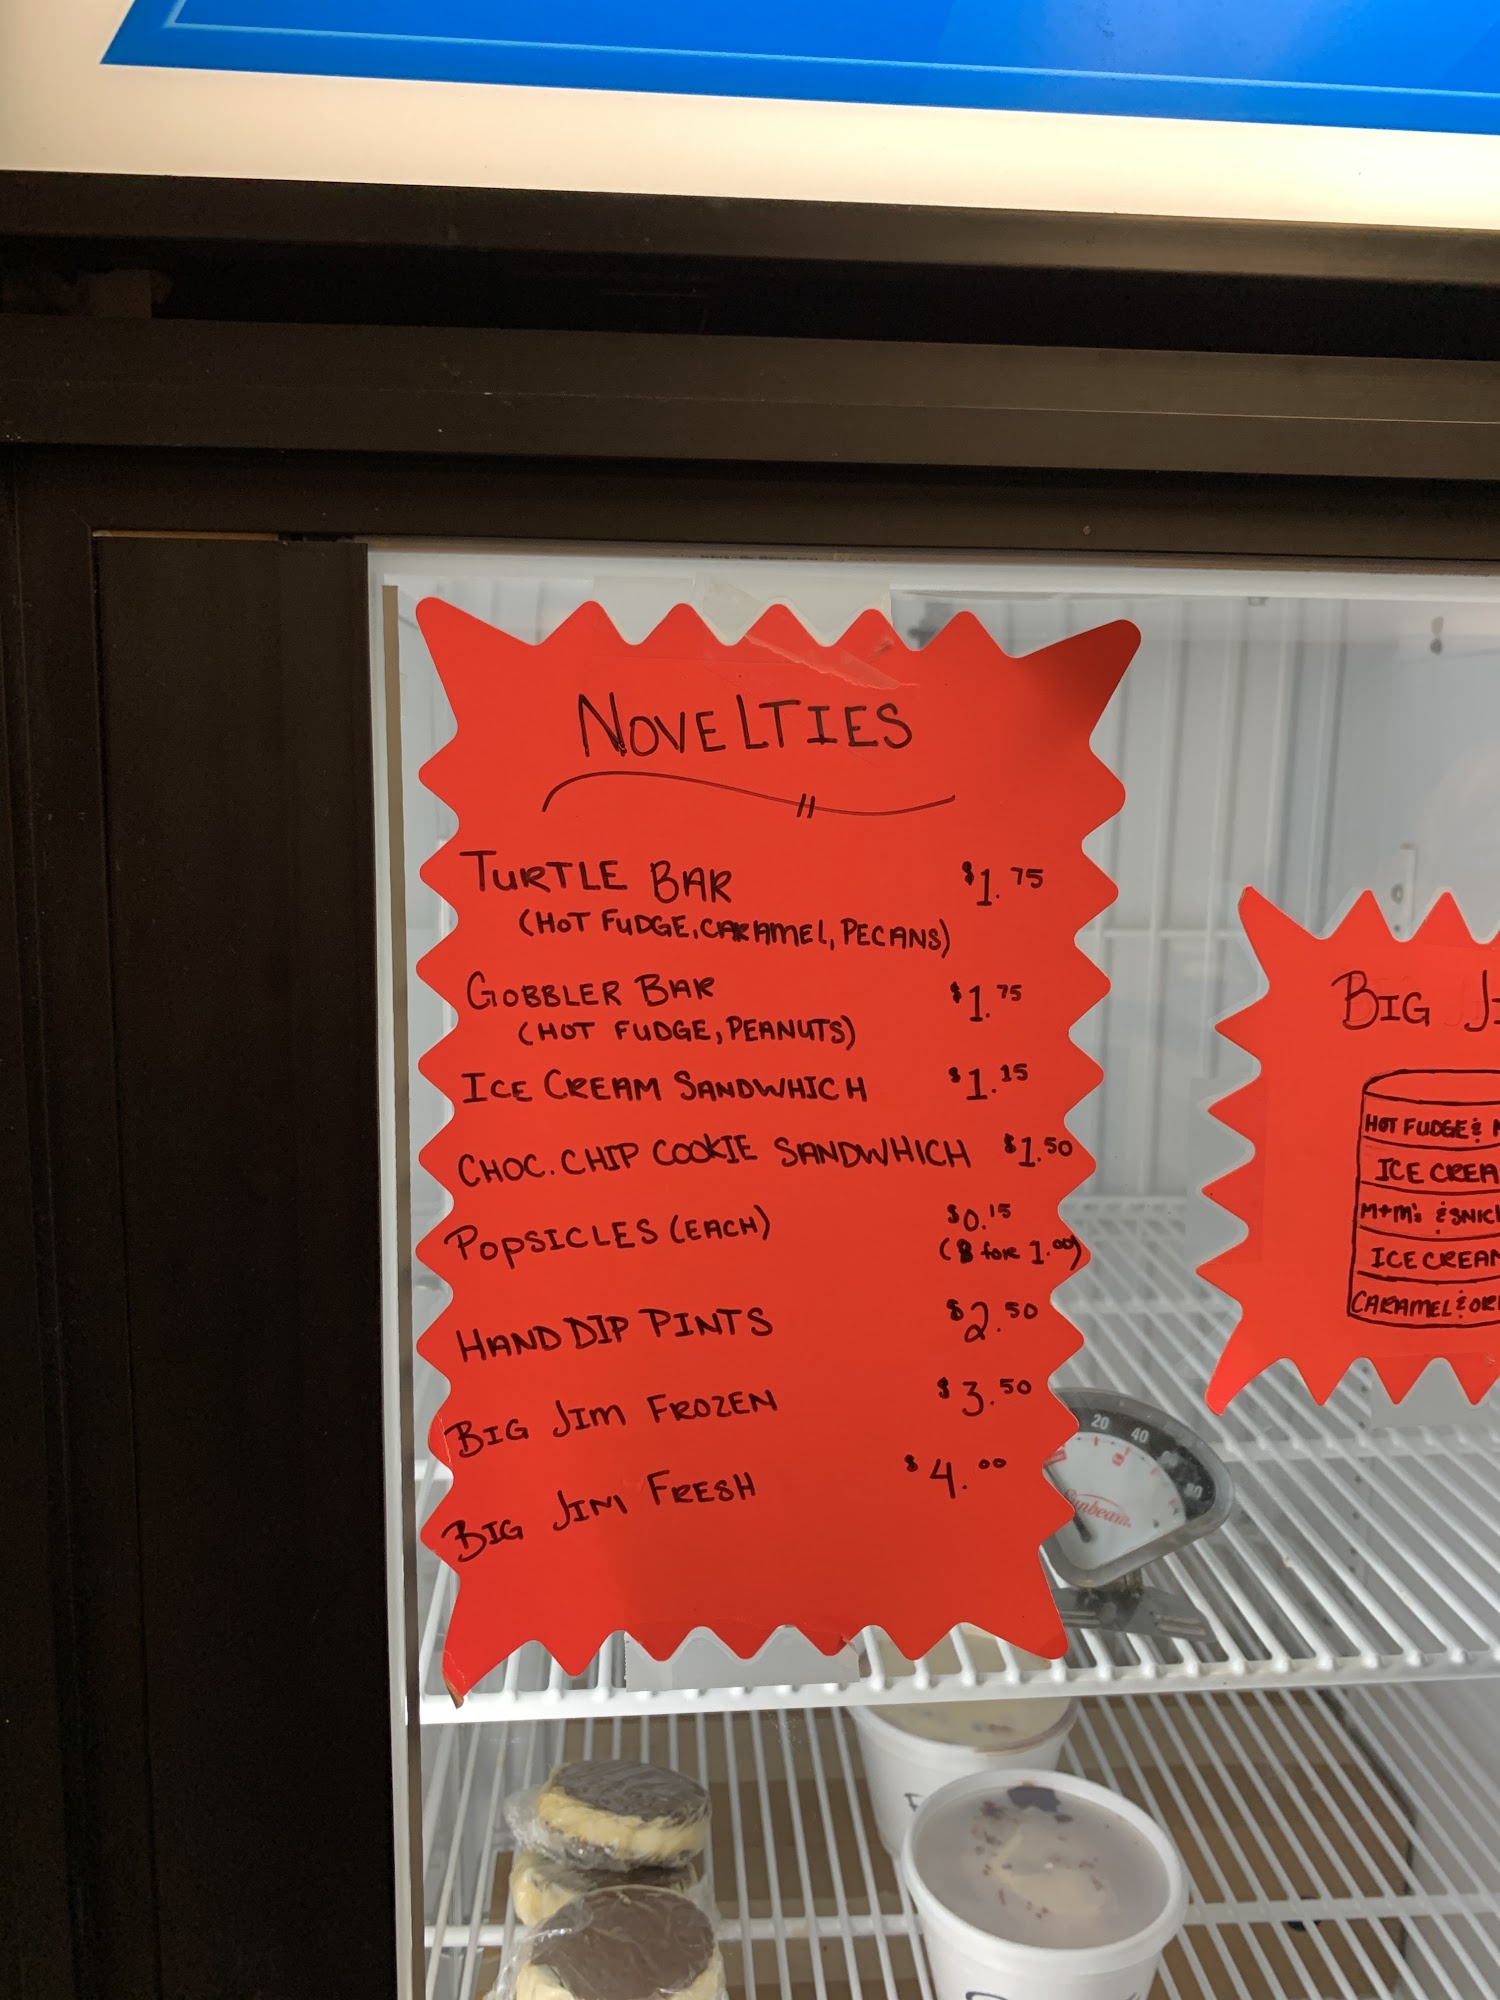 NOVELTIES
TURTLE BAR $1.75
(HOT FUDGE, CARAMEL, PECANS)
GOBBLER BAR $1.75
(HOT FUDGE, PEANUTS)
ICE CREAM SANDWHICH $1.15
CHOC. CHIP COOKIE SANDWHICH $1.50
POPSICLES (EACH) $0.15
(8 for 1.00)
HAND DIP PINTS $2.50
BIG JIM FROZEN $3.50
BIG JIM FRESH $4.00
BIG
HOT FUDGE &
ICE CREA
M+M's & SNIC
ICE CREAM
CARAMEL & OR
20 40 60 80
Sunbeam